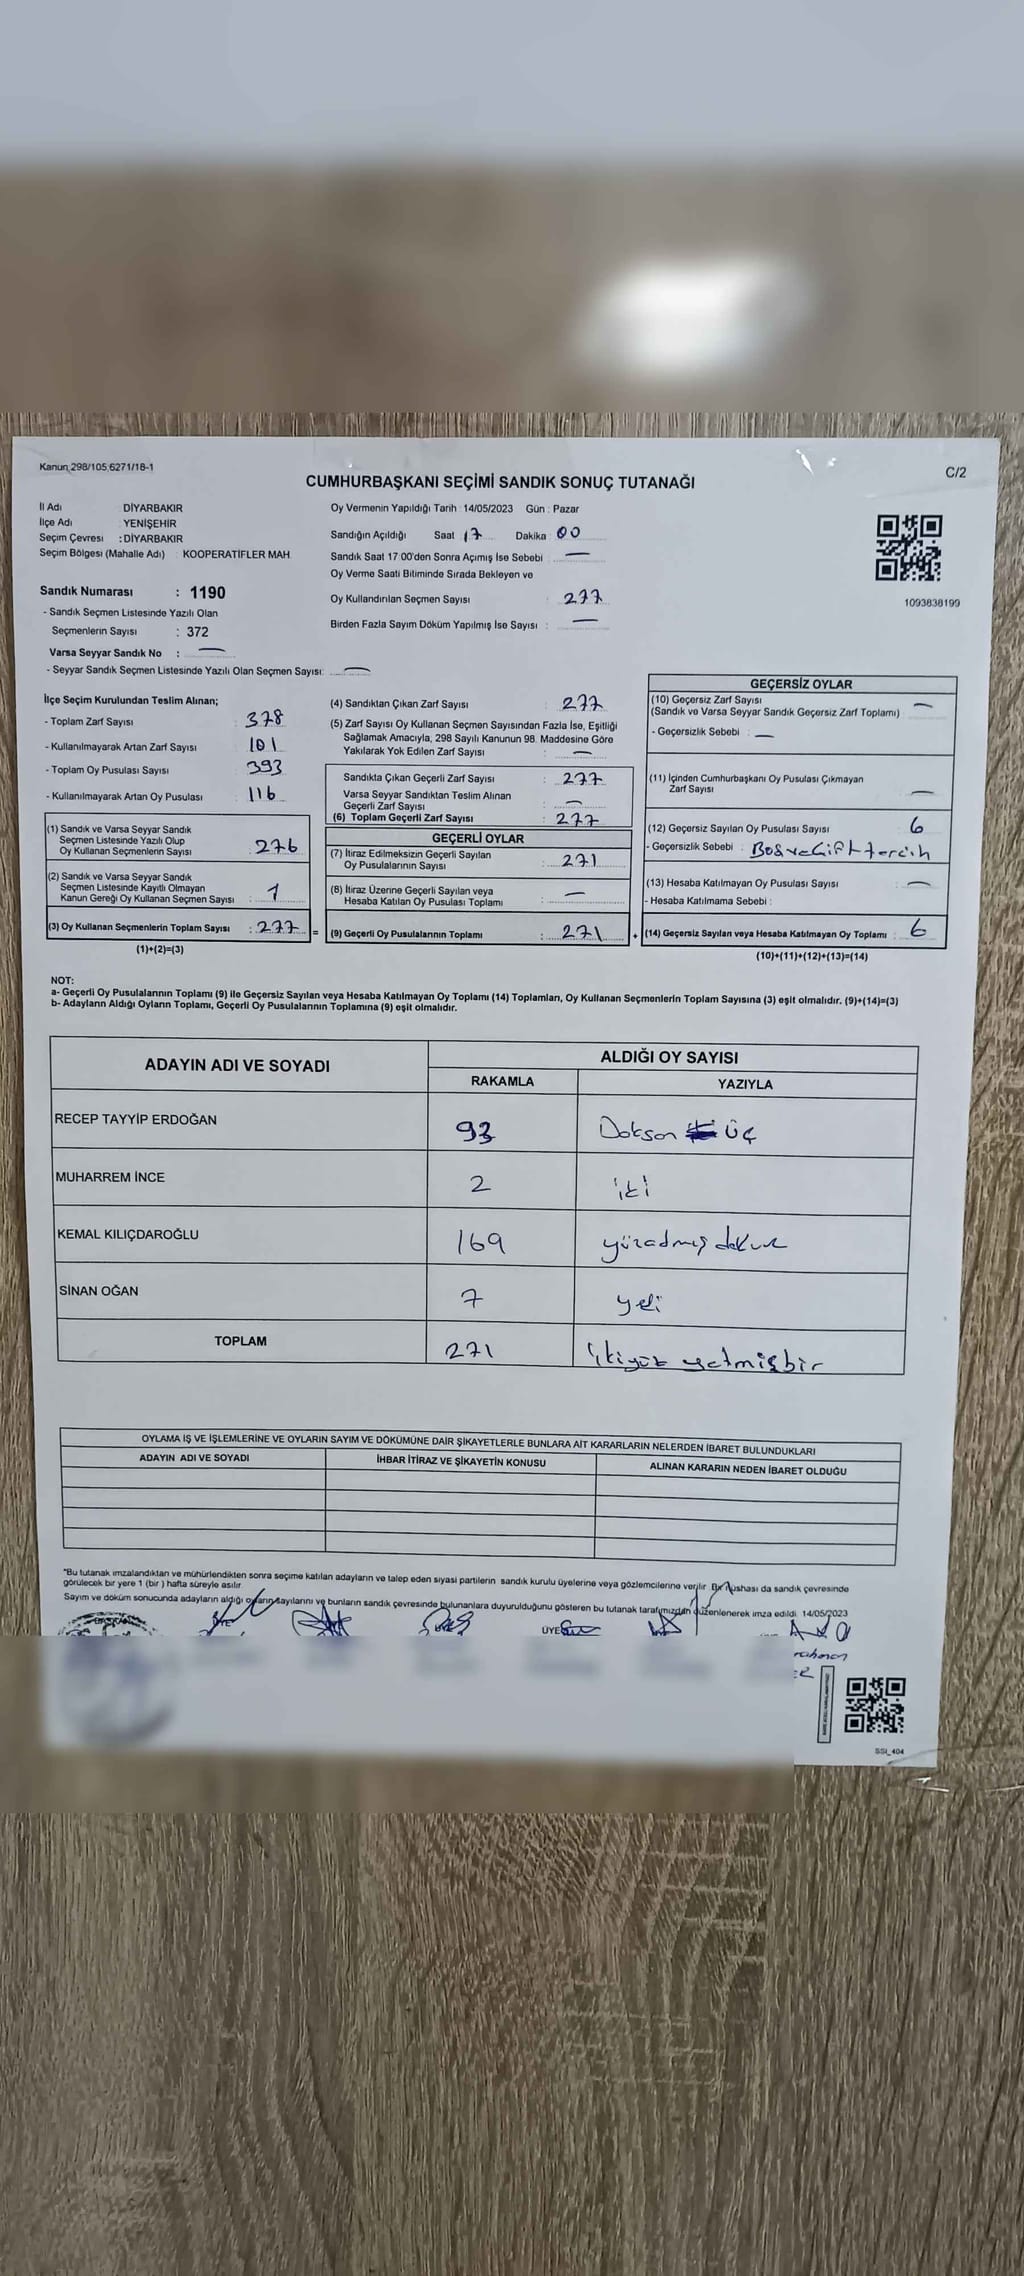 Kanun 298/105 6271/18-1
C/2
CUMHURBAŞKANI SEÇİMİ SANDIK SONUÇ TUTANAĞI
İl Adı : DİYARBAKIR
İlçe Adı : YENİŞEHİR
Seçim Çevresi : DİYARBAKIR
Seçim Bölgesi (Mahalle Adı) : KOOPERATİFLER MAH.
Sandık Numarası : 1190
- Sandık Seçmen Listesinde Yazılı Olan
Seçmenlerin Sayısı : 372
Varsa Seyyar Sandık No : —
- Seyyar Sandık Seçmen Listesinde Yazılı Olan Seçmen Sayısı: —
Oy Vermenin Yapıldığı Tarih : 14/05/2023 Gün : Pazar
Sandığın Açıldığı Saat 17 Dakika 00
Sandık Saat 17.00'den Sonra Açımış İse Sebebi : —
Oy Verme Saati Bitiminde Sırada Bekleyen ve
Oy Kullandırılan Seçmen Sayısı : 277
Birden Fazla Sayım Döküm Yapılmış İse Sayısı : —
1093838199
İlçe Seçim Kurulundan Teslim Alınan;
- Toplam Zarf Sayısı : 378
- Kullanılmayarak Artan Zarf Sayısı : 101
- Toplam Oy Pusulası Sayısı : 393
- Kullanılmayarak Artan Oy Pusulası : 116
(1) Sandık ve Varsa Seyyar Sandık
Seçmen Listesinde Yazılı Olup
Oy Kullanan Seçmenlerin Sayısı : 276
(2) Sandık ve Varsa Seyyar Sandık
Seçmen Listesinde Kayıtlı Olmayan
Kanun Gereği Oy Kullanan Seçmen Sayısı : 1
(3) Oy Kullanan Seçmenlerin Toplam Sayısı : 277 =
(1)+(2)=(3)
(4) Sandıktan Çıkan Zarf Sayısı : 277
(5) Zarf Sayısı Oy Kullanan Seçmen Sayısından Fazla İse, Eşitliği
Sağlamak Amacıyla, 298 Sayılı Kanunun 98. Maddesine Göre
Yakılarak Yok Edilen Zarf Sayısı : —
Sandıkta Çıkan Geçerli Zarf Sayısı : 277
Varsa Seyyar Sandıktan Teslim Alınan
Geçerli Zarf Sayısı : —
(6) Toplam Geçerli Zarf Sayısı : 277
GEÇERLİ OYLAR
(7) İtiraz Edilmeksizin Geçerli Sayılan
Oy Pusulalarının Sayısı : 271
(8) İtiraz Üzerine Geçerli Sayılan veya
Hesaba Katılan Oy Pusulası Toplamı : —
(9) Geçerli Oy Pusulalarının Toplamı : 271 +
GEÇERSİZ OYLAR
(10) Geçersiz Zarf Sayısı
(Sandık ve Varsa Seyyar Sandık Geçersiz Zarf Toplamı) : —
- Geçersizlik Sebebi : —
(11) İçinden Cumhurbaşkanı Oy Pusulası Çıkmayan
Zarf Sayısı : —
(12) Geçersiz Sayılan Oy Pusulası Sayısı : 6
- Geçersizlik Sebebi : Boş ve Çift tercih
(13) Hesaba Katılmayan Oy Pusulası Sayısı : —
- Hesaba Katılmama Sebebi :
(14) Geçersiz Sayılan veya Hesaba Katılmayan Oy Toplamı : 6
(10)+(11)+(12)+(13)=(14)
NOT:
a- Geçerli Oy Pusulalarının Toplamı (9) ile Geçersiz Sayılan veya Hesaba Katılmayan Oy Toplamı (14) Toplamları, Oy Kullanan Seçmenlerin Toplam Sayısına (3) eşit olmalıdır. (9)+(14)=(3)
b- Adayların Aldığı Oyların Toplamı, Geçerli Oy Pusulalarının Toplamına (9) eşit olmalıdır.
ADAYIN ADI VE SOYADI
ALDIĞI OY SAYISI
RAKAMLA YAZIYLA
RECEP TAYYİP ERDOĞAN 93 Doksan üç
MUHARREM İNCE 2 iki
KEMAL KILIÇDAROĞLU 169 yüzadmış dokuz
SİNAN OĞAN 7 yedi
TOPLAM 271 ikiyüz yetmişbir
OYLAMA İŞ VE İŞLEMLERİNE VE OYLARIN SAYIM VE DÖKÜMÜNE DAİR ŞİKAYETLERLE BUNLARA AİT KARARLARIN NELERDEN İBARET BULUNDUKLARI
ADAYIN ADI VE SOYADI İHBAR İTİRAZ VE ŞİKAYETİN KONUSU ALINAN KARARIN NEDEN İBARET OLDUĞU
*Bu tutanak imzalandıktan ve mühürlendikten sonra seçime katılan adayların ve talep eden siyasi partilerin sandık kurulu üyelerine veya gözlemcilerine verilir. Bir nüshası da sandık çevresinde
görülecek bir yere 1 (bir ) hafta süreyle asılır.
Sayım ve döküm sonucunda adayların aldığı oyların sayılarını ve bunların sandık çevresinde bulunanlara duyurulduğunu gösteren bu tutanak tarafımızdan düzenlenerek imza edildi. 14/05/2023
ÜYE
SSI_404